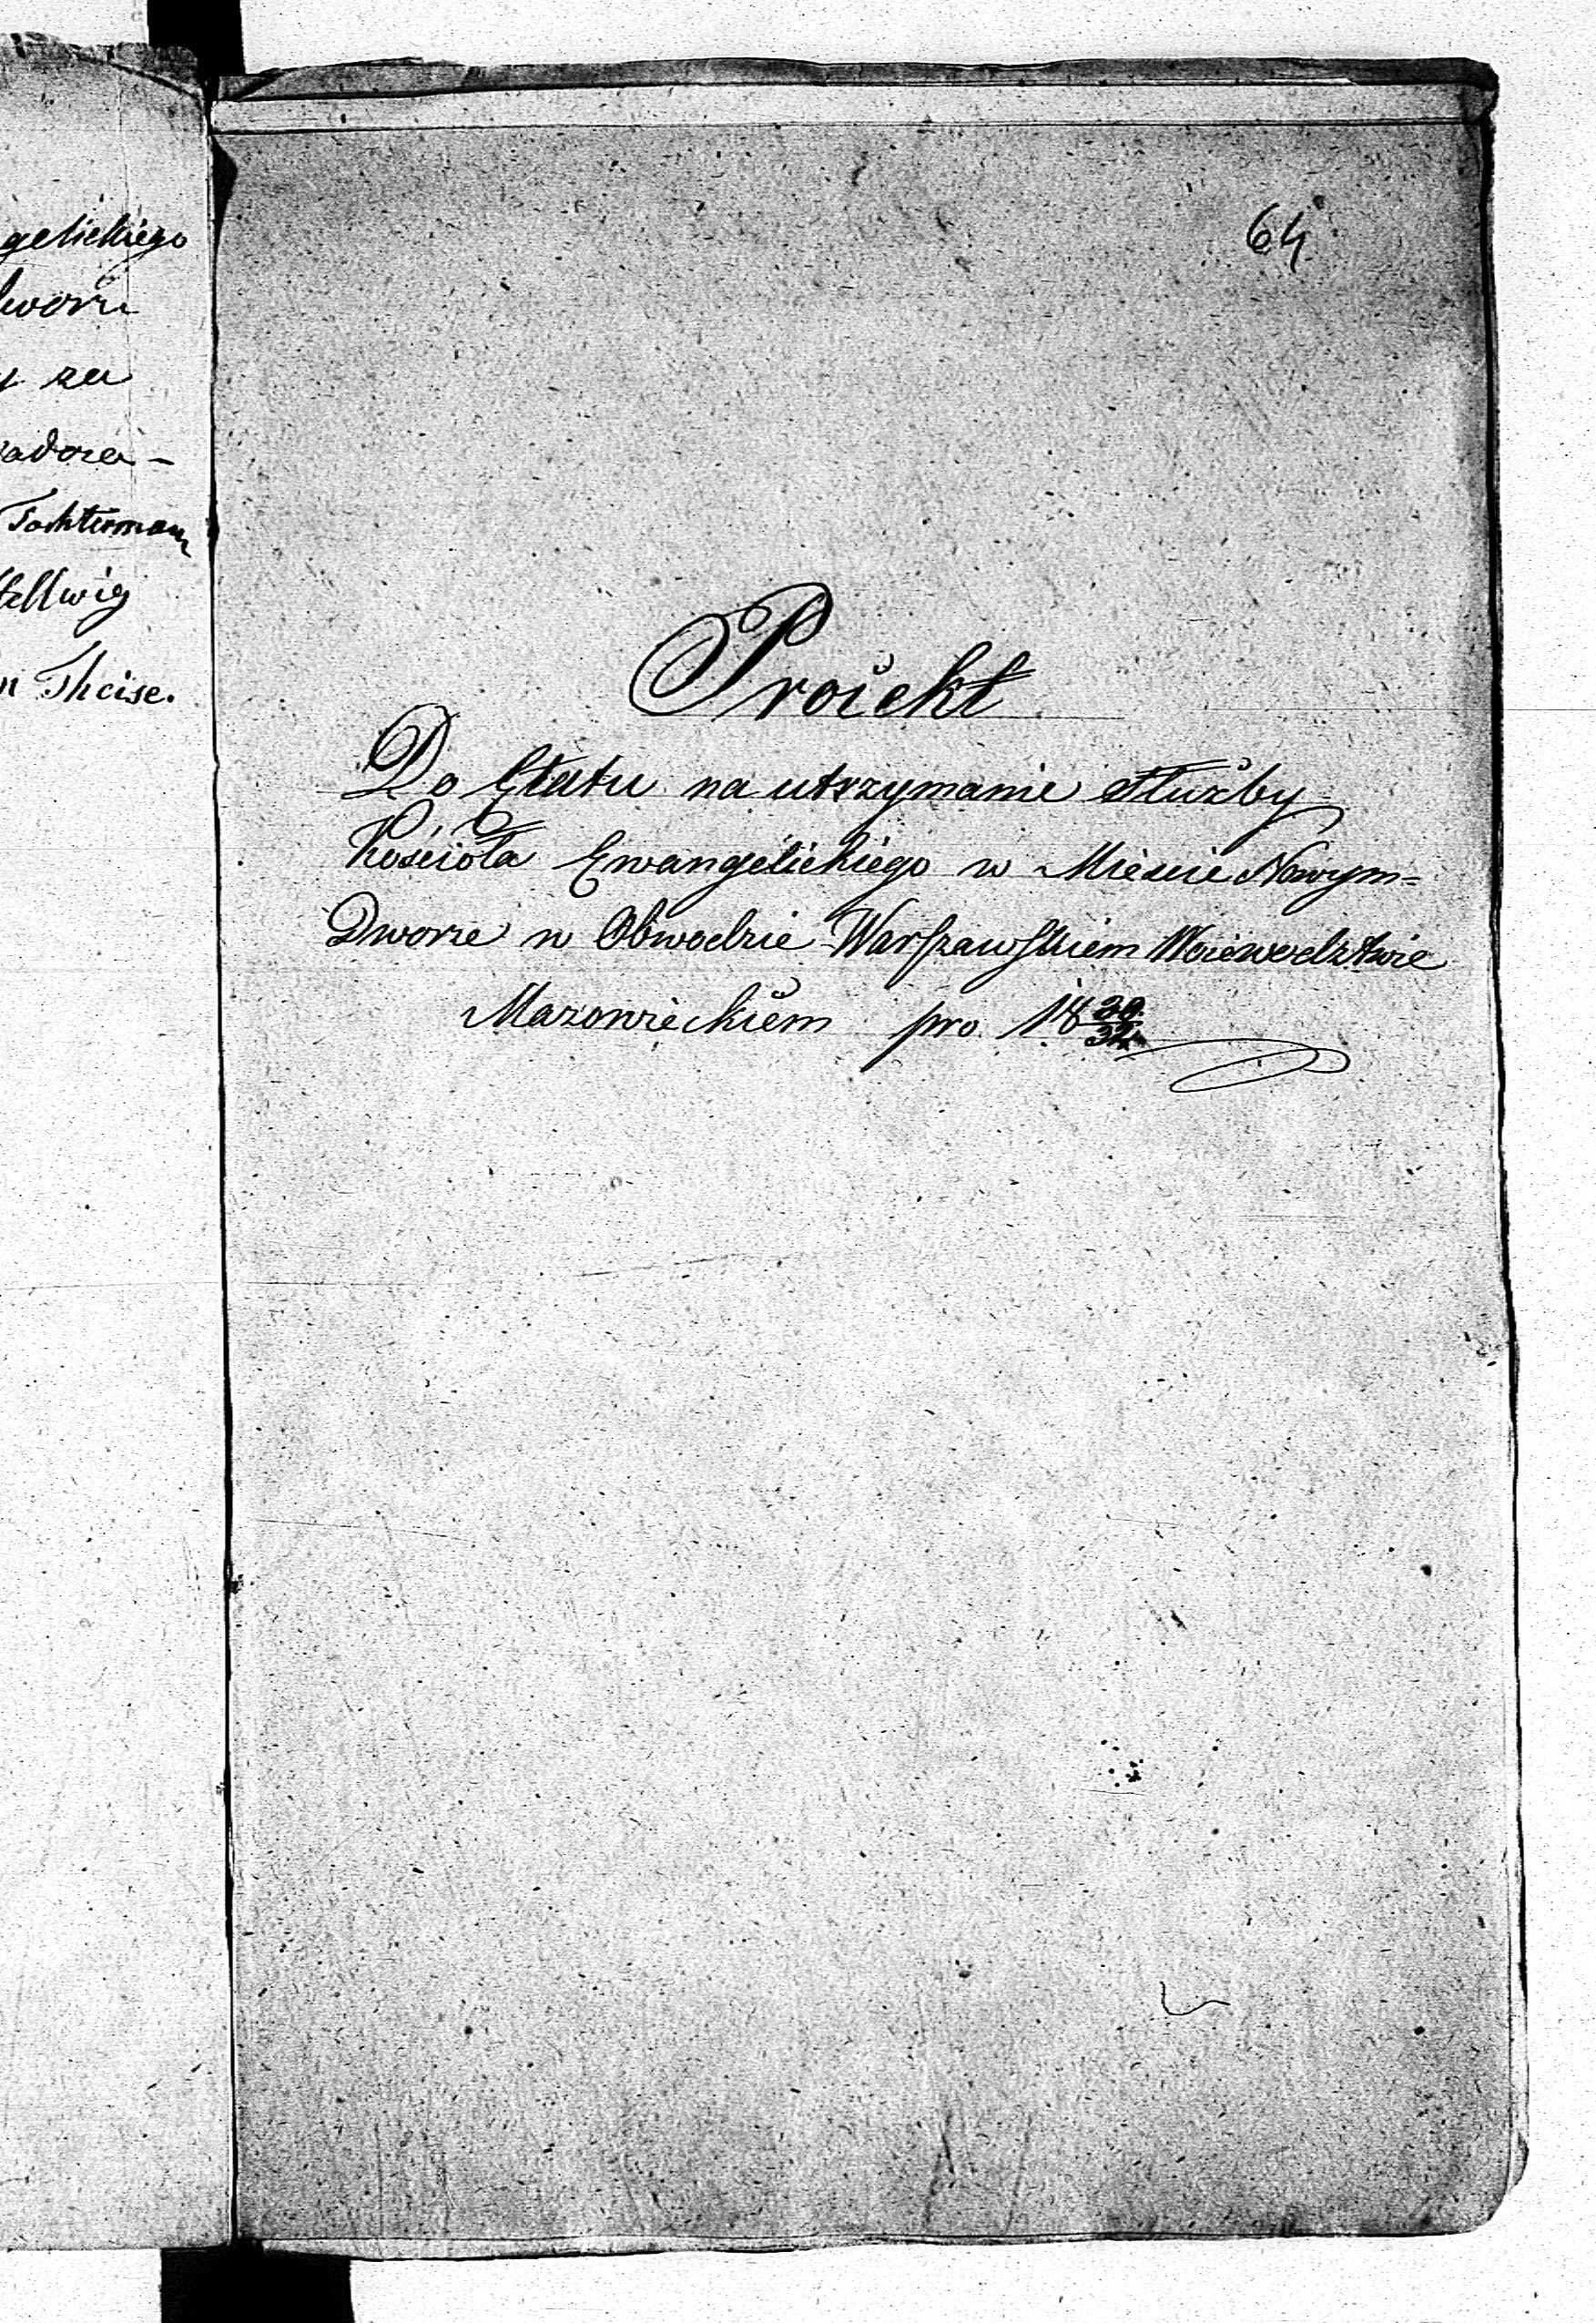 gelickiego
worze
za
Tochterman
Hellwig
n Theise.
64
Proiekt
Do Etatu na utrzymanie Służby
Kościoła Ewangelickiego w Mieście Nowym=
Dworze w Obwodzie Warszawskiem Woiewodztwie
Mazowieckiem pro 18 30/32